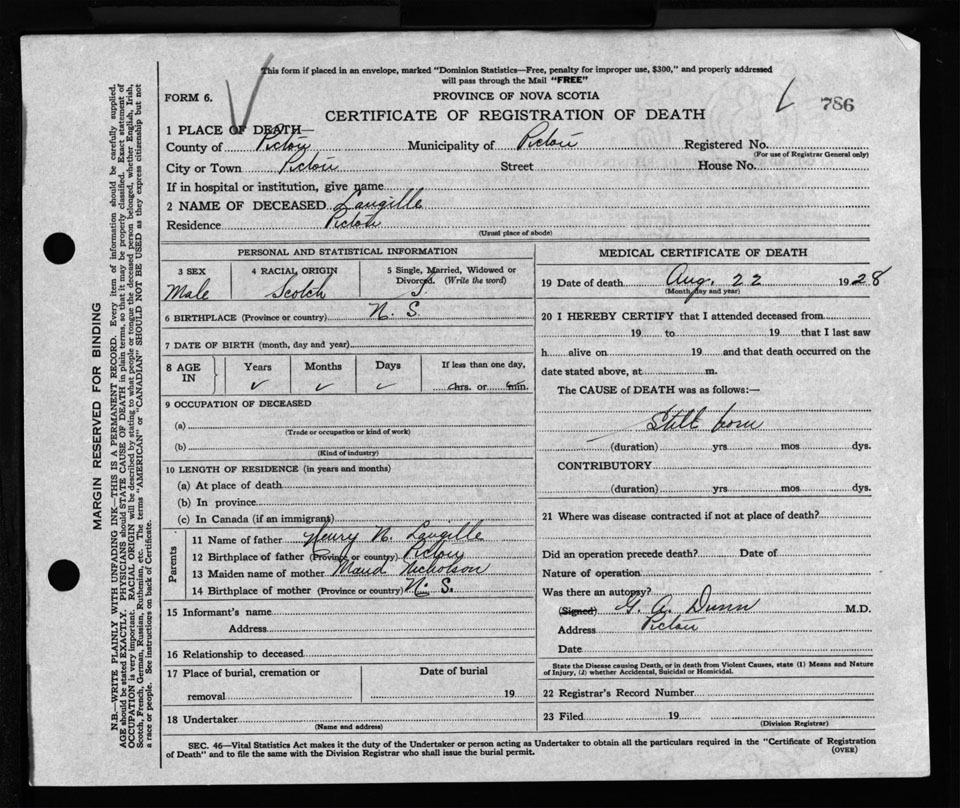 This form if placed in an envelope, marked "Dominion Statistics—Free, penalty for improper use, $300," and properly addressed
will pass through the Mail "FREE"
FORM 6.
PROVINCE OF NOVA SCOTIA
786
CERTIFICATE OF REGISTRATION OF DEATH
1 PLACE OF DEATH—
County of Pictou Municipality of Pictou Registered No.
(For use of Registrar General only)
City or Town Pictou Street House No.
If in hospital or institution, give name
2 NAME OF DECEASED Langille
Residence Pictou
(Usual place of abode)
PERSONAL AND STATISTICAL INFORMATION
3 SEX 4 RACIAL ORIGIN 5 Single, Married, Widowed or
Divorced. (Write the word)
Male Scotch S.
6 BIRTHPLACE (Province or country) N. S.
7 DATE OF BIRTH (month, day and year)
8 AGE IN Years Months Days If less than one day,
hrs. or min.
9 OCCUPATION OF DECEASED
(a)
(Trade or occupation or kind of work)
(b)
(Kind of industry)
10 LENGTH OF RESIDENCE (in years and months)
(a) At place of death
(b) In province
(c) In Canada (if an immigrant)
Parents
11 Name of father Henry N. Langille
12 Birthplace of father (Province or country) Pictou
13 Maiden name of mother Maud Nicholson
14 Birthplace of mother (Province or country) N. S.
15 Informant's name
Address
16 Relationship to deceased
17 Place of burial, cremation or Date of burial
removal 19
18 Undertaker
(Name and address)
MEDICAL CERTIFICATE OF DEATH
19 Date of death Aug. 22 1928
(Month, day and year)
20 I HEREBY CERTIFY that I attended deceased from
19 to 19 that I last saw
h alive on 19 and that death occurred on the
date stated above, at m.
The CAUSE of DEATH was as follows:—
Still born
(duration) yrs mos dys.
CONTRIBUTORY
(duration) yrs mos dys.
21 Where was disease contracted if not at place of death?
Did an operation precede death? Date of
Nature of operation
Was there an autopsy?
(Signed) G. A. Dunn M.D.
Address Pictou
Date
State the Disease causing Death, or in death from Violent Causes, state (1) Means and Nature
of Injury, (2) whether Accidental, Suicidal or Homicidal.
22 Registrar's Record Number
23 Filed 19
(Division Registrar)
SEC. 46—Vital Statistics Act makes it the duty of the Undertaker or person acting as Undertaker to obtain all the particulars required in the "Certificate of Registration
of Death" and to file the same with the Division Registrar who shall issue the burial permit.
(OVER)
MARGIN RESERVED FOR BINDING
N.B.—WRITE PLAINLY WITH UNFADING INK—THIS IS A PERMANENT RECORD. Every item of information should be carefully supplied.
AGE should be stated EXACTLY. PHYSICIANS should STATE CAUSE OF DEATH in plain terms, so that it may be properly classified. Exact statement of
OCCUPATION is very important. RACIAL ORIGIN will be described by stating to what people or tongue the deceased person belonged, whether English, Irish,
Scotch, French, German, Russian, Ruthenian, etc. The terms "AMERICAN" or "CANADIAN" SHOULD NOT BE USED as they express citizenship but not
a race or people. See instructions on back of Certificate.